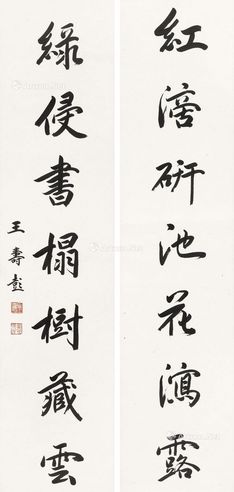 紅滴研池花瀉露
綠侵書榻樹藏雲
王壽彭